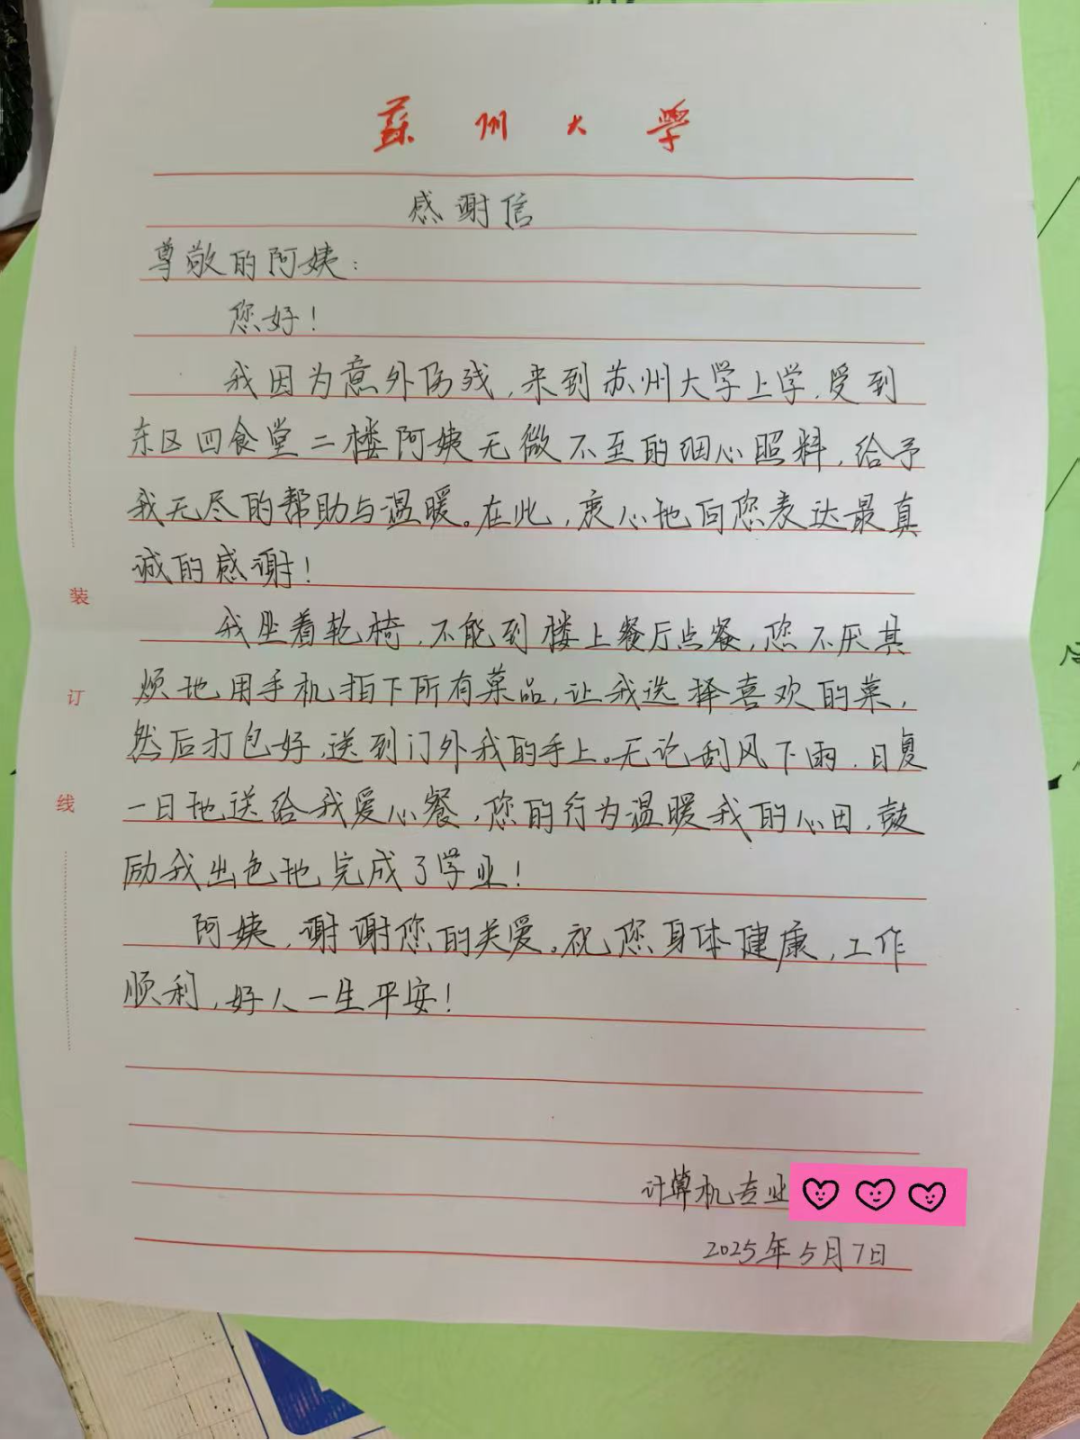 蘇州大學
感谢信
尊敬的阿姨：
您好！
我因为意外伤残，来到苏州大学上学，受到
东区四食堂二楼阿姨无微不至的细心照料，给予
我无尽的帮助与温暖。在此，衷心地向您表达最真
诚的感谢！
我坐着轮椅，不能到楼上餐厅点餐，您不厌其
烦地用手机拍下所有菜品，让我选择喜欢的菜，
然后打包好，送到门外我的手上。无论刮风下雨，日复
一日地送给我爱心餐，您的行为温暖我的心田，鼓
励我出色地完成了学业！
阿姨，谢谢您的关爱。祝您身体健康，工作
顺利，好人一生平安！
计算机专业
2025年5月7日
装
订
线